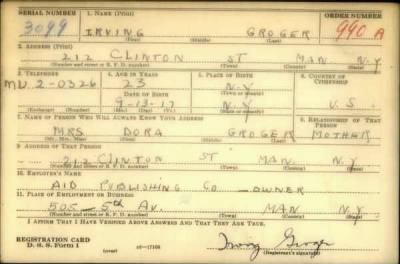 SERIAL NUMBER 1. NAME (Print) ORDER NUMBER
3099 IRVING GROGER 990 A
(First) (Middle) (Last)
2. ADDRESS (Print)
212 CLINTON ST MAN N.Y
(Number and street or R. F. D. number) (Town) (County) (State)
3. TELEPHONE 4. AGE IN YEARS 5. PLACE OF BIRTH 6. COUNTRY OF CITIZENSHIP
MU. 2-0326 23 N.Y
DATE OF BIRTH
9-13-17 N.Y U.S.
(Exchange) (Number) (Mo.) (Day) (Yr.) (State or country)
7. NAME OF PERSON WHO WILL ALWAYS KNOW YOUR ADDRESS 8. RELATIONSHIP OF THAT PERSON
MRS DORA GROGER MOTHER
(Mr., Mrs., Miss) (First) (Middle) (Last)
9. ADDRESS OF THAT PERSON
212 CLINTON ST MAN. N.Y.
(Number and street or R. F. D. number) (Town) (County) (State)
10. EMPLOYER'S NAME
AID PUBLISHING CO - OWNER
11. PLACE OF EMPLOYMENT OR BUSINESS
505 - 5th AV. MAN N.Y
(Number and street or R. F. D. number) (Town) (County) (State)
I AFFIRM THAT I HAVE VERIFIED ABOVE ANSWERS AND THAT THEY ARE TRUE.
REGISTRATION CARD
D. S. S. Form 1 (over) 16—17105 Irving Groger
(Registrant's signature)